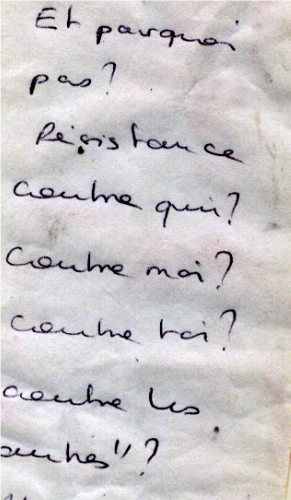 Et pourquoi
pas?
Résistance
contre qui?
Contre moi?
contre toi?
contre les
autres"?